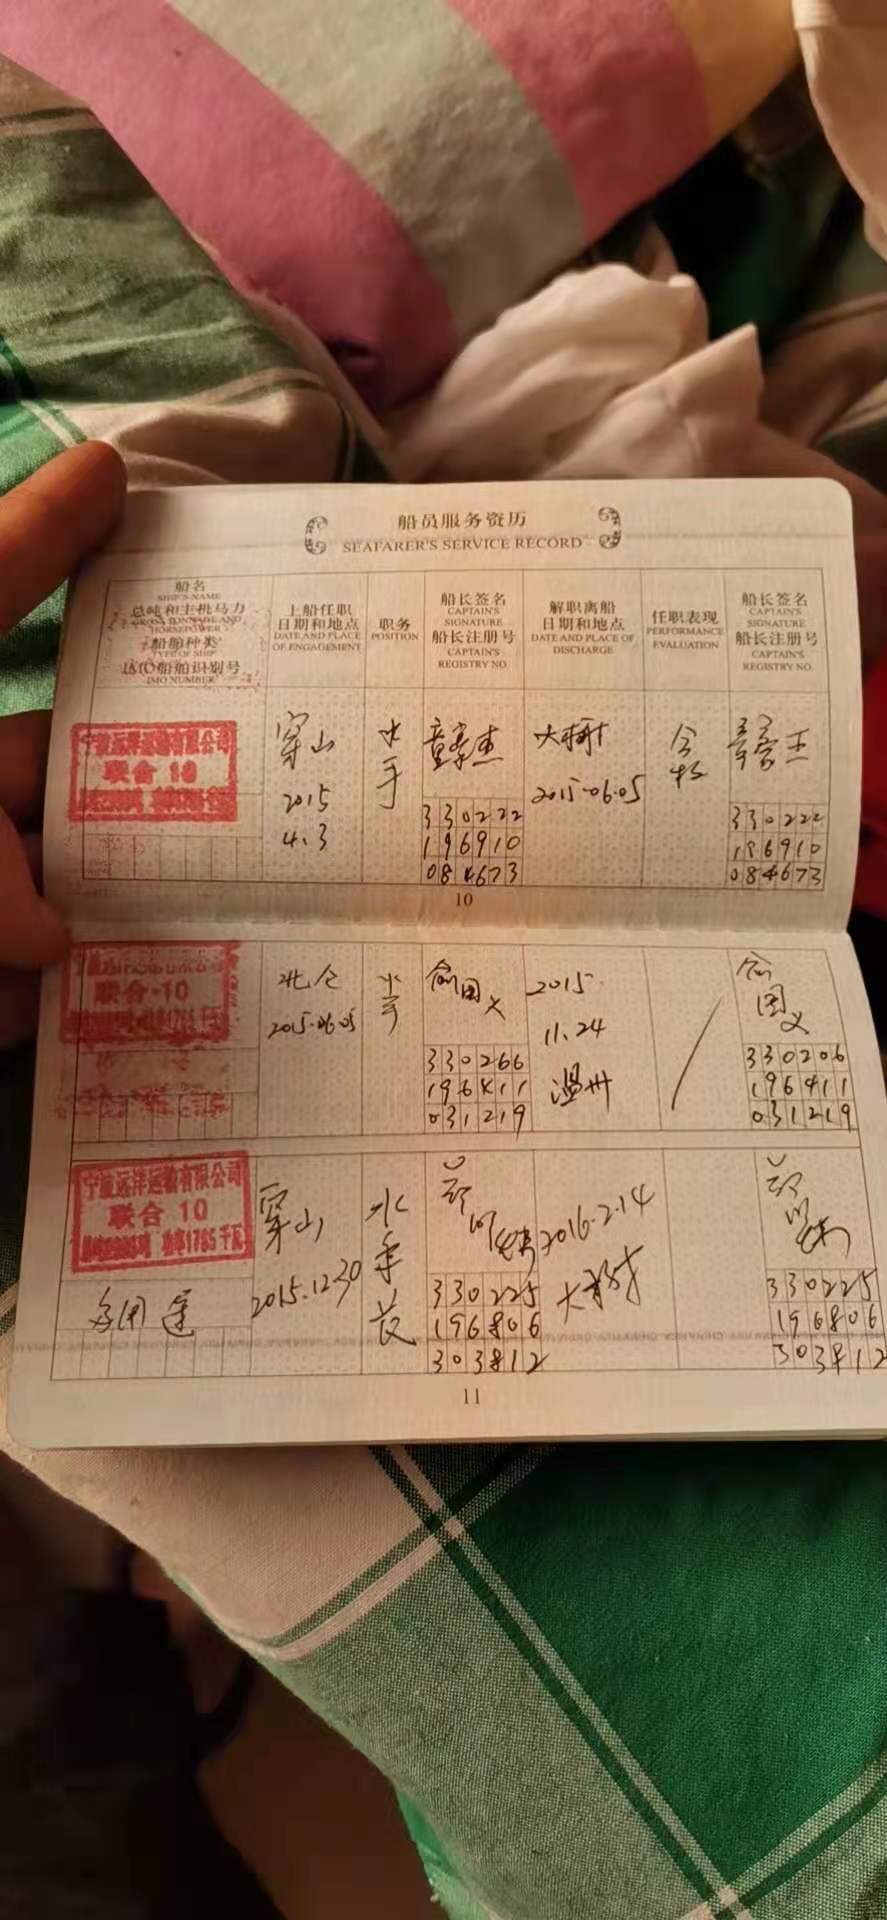 船员服务资历
SEAFARER'S SERVICE RECORD
船名
SHIP'S NAME
总吨和主机马力
GROSS TONNAGE AND
HORSEPOWER
船舶种类
TYPE OF SHIP
IMO船舶识别号
IMO NUMBER
上船任职
日期和地点
DATE AND PLACE
OF ENGAGEMENT
职务
POSITION
船长签名
CAPTAIN'S
SIGNATURE
船长注册号
CAPTAIN'S
REGISTRY NO.
解职离船
日期和地点
DATE AND PLACE OF
DISCHARGE
任职表现
PERFORMANCE
EVALUATION
船长签名
CAPTAIN'S
SIGNATURE
船长注册号
CAPTAIN'S
REGISTRY NO.
宁波远洋运输有限公司
联合 10
穿山
2015
4.3
水手
330222
196910
084673
大榭
2015-06.05
330222
196910
084673
10
联合·10
北仑
2015-06.05
水手
330266
196411
031219
2015
11.24
温州
330206
196411
031219
宁波远洋运输有限公司
联合 10
功率1765千瓦
多用途
穿山
2015.12.30
水手长
330225
196806
303812
2016.2.14
大榭
330225
196806
303812
11